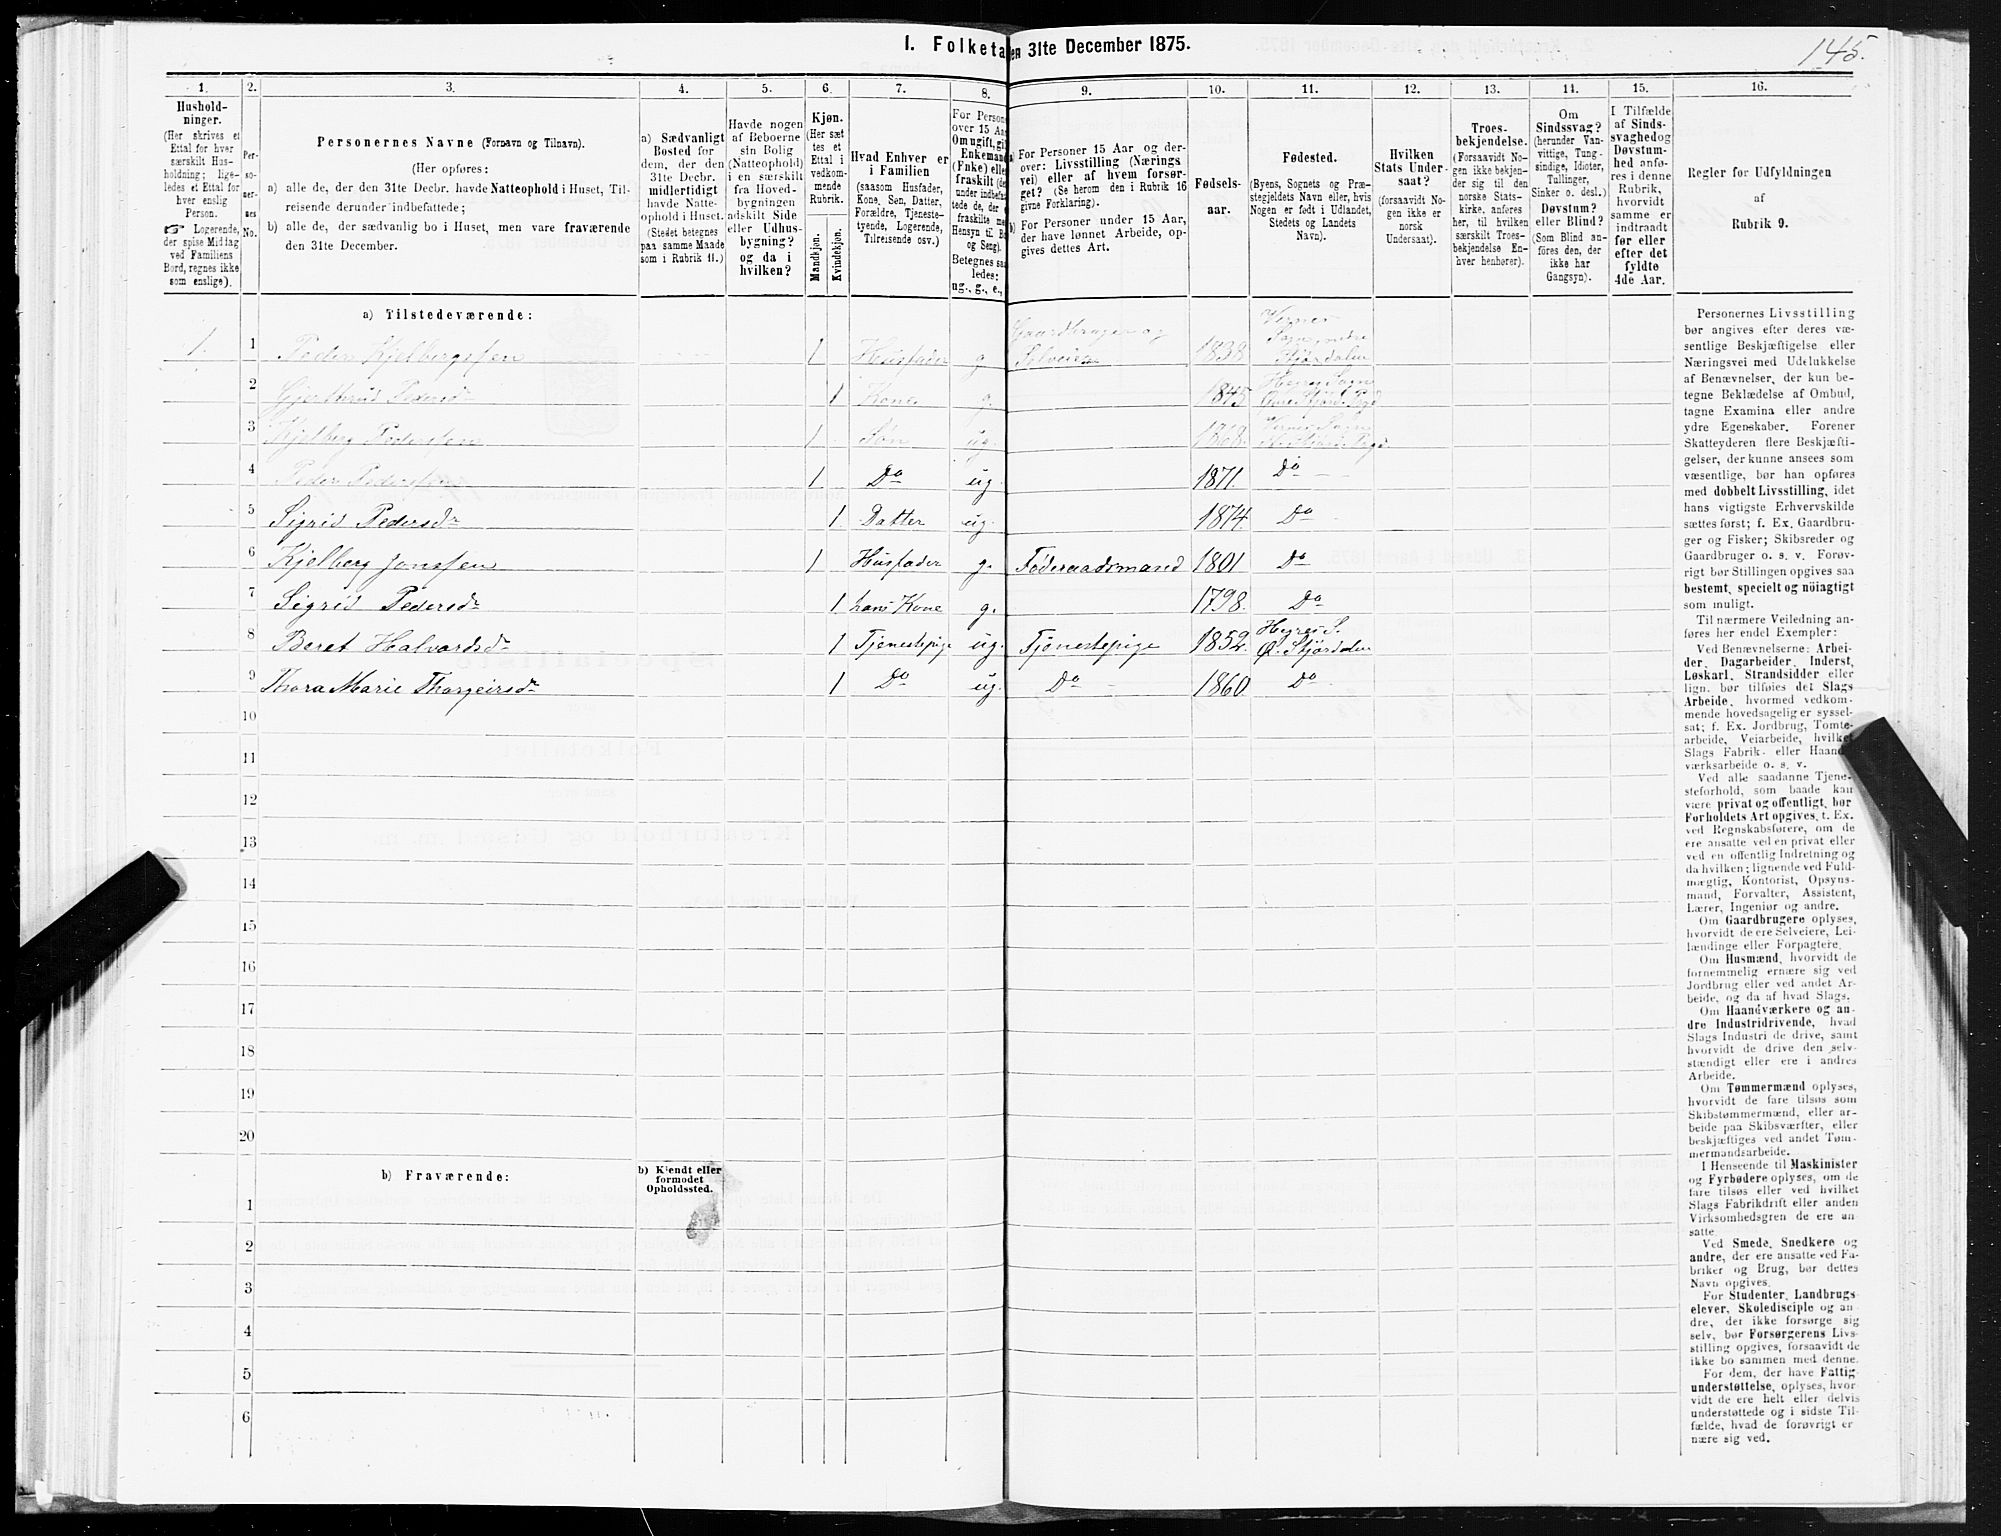 I. Folketa
en 31te December 1875.
145.
1.
2.
3.
4.
5.
6.
7.
8.
9.
10.
11.
12.
13.
14.
15.
16.
Hushold-
ninger.
(Her skrives et
Ettal for hver
særskilt Hus-
holdning; lige-
ledes et Ettal for
hver enslig
Person.
☞ Logerende,
der spise Middag
ved Familiens
Bord, regnes ikke
som enslige).
Per-
so-
ner-
nes
No.
Personernes Navne (Fornavn og Tilnavn).
(Her opføres:
a) alle de, der den 31te Decbr. havde Natteophold i Huset, Til-
reisende derunder indbefattede;
b) alle de, der sædvanlig bo i Huset, men vare fraværende
den 31te December.
a) Sædvanligt
Bosted for
dem, der den
31te Decbr.
midlertidigt
havde Natte-
ophold i Huset.
(Stedet betegnes
paa samme Maade
som i Rubrik 11.)
Havde nogen
af Beboerne
sin Bolig
(Natteophold)
i en særskilt
fra Hoved-
bygningen
adskilt Side
eller Udhus-
bygning?
og da i
hvilken?
Kjøn.
(Her sæt
tes et
Ettal i
vedkom-
mende
Rubrik.
Mandkjøn.
Kvindekjøn.
Hvad Enhver er
i Familien
(saasom Husfader,
Kone, Søn, Datter,
Forældre, Tjeneste-
tyende, Logerende,
Tilreisende osv.)
For Persone
over 15 Aa
Om ugift, gi
Enkemand
(Enke) elle
fraskilt (de
under indbefa
tede de, der
fraskilte me
Hensyn til Bo
og Seng).
Betegnes saa
ledes:
ug., g., e.,
a) For Personer 15 Aar og der-
over: Livsstilling (Nærings
vei) eller af hvem forsør-
get? (Se herom den i Rubrik 16
givne Forklaring).
b) For Personer under 15 Aar,
der have lønnet Arbeide, op-
gives dettes Art.
Fødsels-
aar.
Fødested.
(Byens, Sognets og Præ-
stegjeldets Navn eller, hvis
Nogen er født i Udlandet,
Stedets og Landets
Navn).
Hvilken
Stats Under-
saat?
(forsaavidt No-
gen ikke er
norsk
Undersaat).
Troes-
bekjendelse.
(Forsaavidt No-
gen ikke bekjen-
der sig til den
norske Stats-
kirke, anføres
her, til hvilken
særskilt Troes-
bekjendelse En-
hver henhører).
Om
Sindssvag?
(herunder Van-
vittige, Tung-
sindige, Idioter,
Tullinger,
Sinker o. desl.)
Døvstum?
eller Blind?
(Som Blind an-
føres den, der
ikke har
Gangsyn).
I Tilfælde
af Sinds-
svaghed og
Døvstum-
hed anfø-
res i denne
Rubrik,
hvorvidt
samme er
indtraadt
før eller
efter det
fyldte
4de Aar.
Regler for Udfyldningen
af
Rubrik 9.
a) Tilstedeværende:
1. 1 Peder Kjelbergssen 1 Husfader g Gaardbruger og Selveier 1838 Vernes Sogn nedre Stjørdalen
2 Gjertrud Pedersdr 1 Kone g. 1845 Hegre Sogn Øvre Stjørd. Prgd
3 Kjelberg Pederssen 1 Søn ug. 1868. Vernes Sogn N. Stjørd. Prgd
4 Peder Pederssen 1 Do ug. 1871. Do
5 Sigrid Pedersdr 1 Datter ug. 1874. Do
6 Kjelberg Jonssen 1 Husfader g. Føderaadsmand 1801 Do
7 Sigrid Pedersdr 1 hans Kone g. 1798. Do
8 Beret Halvardsdr 1 Tjenestepige ug. Tjenestepige 1852. Hegres S. Ø. Stjørdalen
9 Thora Marie Thorgeirsdr 1 Do ug. Do 1860. Do
10
11
12
13
14
15
16
17
18
19
20
b) Fraværende:
b) Kjendt eller
formodet
Opholdssted.
1
2
3
4
5
6
Personernes Livsstilling
bør angives efter deres væ-
sentlige Beskjæftigelse eller
Næringsvei med Udelukkelse
af Benævnelser, der kun be-
tegne Beklædelse af Ombud,
tagne Examina eller andre
ydre Egenskaber. Forener
Skatteyderen flere Beskjæfti-
gelser, der kunne ansees som
væsentlige, bør han opføres
med dobbelt Livsstilling, idet
hans vigtigste Erhvervskilde
sættes først; f. Ex. Gaardbru-
ger og Fisker; Skibsreder og
Gaardbruger o. s. v. Forøv-
rigt bør Stillingen opgives saa
bestemt, specielt og nöiagtigt
som muligt.
Til nærmere Veiledning an-
føres her endel Exempler:
Ved Benævnelserne: Arbei-
der, Dagarbeider, Inderst,
Løskarl, Strandsidder eller
lign. bør tilføies det Slags
Arbeide, hvormed vedkom-
mende hovedsagelig er syssel-
sat; f. Ex. Jordbrug, Tomte-
arbeide, Veiarbeide, hvilket
Slags Fabrik- eller Haand-
værksarbeide o. s. v.
Ved alle saadanne Tjene-
steforhold, som baade kan
være privat og offentligt, bør
Forholdets Art opgives, t. Ex.
ved Regnskabsførere, om de
ere ansatte ved en privat eller
ved en offentlig Indretning og
da hvilken; lignende ved Fuld-
mægtig, Kontorist, Opsyns-
mand, Forvalter, Assistent,
Lærer, Ingeniør og andre.
Om Gaardbrugere oplyses,
hvorvidt de ere Selveiere, Lei-
lændinge eller Forpagtere.
Om Husmænd, hvorvidt de
fornemmelig ernære sig ved
Jordbrug eller ved andet Ar-
beide, og da af hvad Slags.
Om Haandværkere og an-
dre Industridrivende, hvad
Slags Industri de drive, samt
hvorvidt de drive den selv-
stændigt eller ere i andres
Arbeide.
Om Tømmermænd oplyses,
hvorvidt de fare tilsøs som
Skibstømmermænd, eller ar-
beide paa Skibsværfter, eller
beskjæftiges ved andet Tøm-
mermandsarbeide.
I Henseende til Maskinister
og Fyrbødere oplyses, om de
fare tilsøs eller ved hvilket
Slags Fabrikdrift eller anden
Virksomhedsgren de ere an-
satte.
Ved Smede, Snedkere og
andre, der ere ansatte ved Fa-
briker og Brug, bør dettes
Navn opgives.
For Studenter, Landbrugs-
elever, Skoledisciple og an-
dre, der ikke forsørge sig
selv, bør Forsørgerens Livs-
stilling opgives, forsaavidt de
ikke bo sammen med denne.
For dem, der have Fattig-
understøttelse, oplyses, hvor-
vidt de ere helt eller delvis
understøttede og i sidste Til-
fælde, hvad de forøvrigt er
nære sig ved.